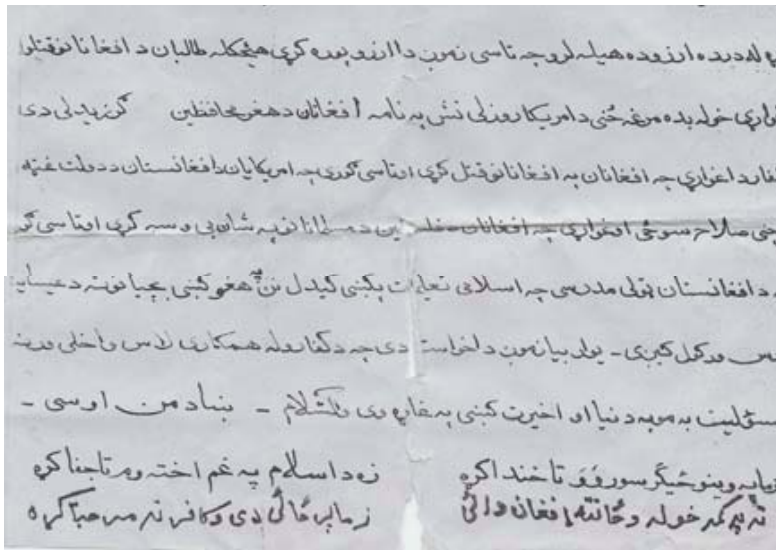 له دیره ارزو ده هیله لرو چه تاسی زمون دا ارزو پوره کړی هیڅکله طالبان د افغانانو قتلو
غواړی خوله بده مرغه ځنی د امریکا روزلی نن په نامه افغانان د هغو محافظین ګرزیدلی دی
کفار دا غواړی چه افغانان په افغانانو قتل کړی او تاسی ګوری چه امریکایان د افغانستان د دولت غټه
صلاح سوځی او غواړی چه افغانان د مسلمانانو په شان بی وسه کړی او تاسی ګو
د افغانستان ټولی مدرسی چه اسلامی تعلیمات پکښی کیدل نن په هغو کښی بچیانو ته د عیسایت
درس ورکول کیږی - یوله بیا زمون داخواست دی چه د کفارو له همکاری لاس واخلی ورنه
مسؤلیت به مو په دنیا او اخیرت کښی په غاړه وی والسلام - بنیاد من اوسی -
زما په وینو ځیګر سور وو تا خندا کړه زه د اسلام په غم اخته وم تا جفا کړه
ته په کمه خوله و ځانته افغان وائی زما پر ځائی دی و کافر ته مرحبا کړه